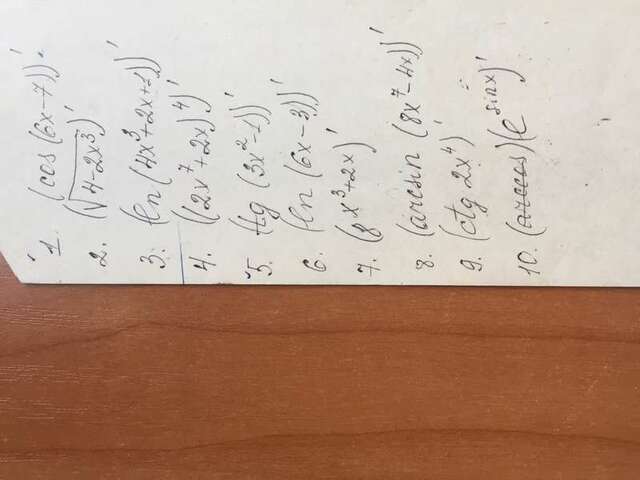 1. (cos (6x-7))'
2. (√4-2x³)'
3. (ln (4x³+2x+1))'
4. ((2x⁷+2x)⁴)'
5. (tg (3x²-1))'
6. (ln (6x-3))'
7. (8^x³+2x)'
8. (arcsin (8x⁷-4x))'
9. (ctg 2x⁴)'
10. (arccos)(e^sinx)'